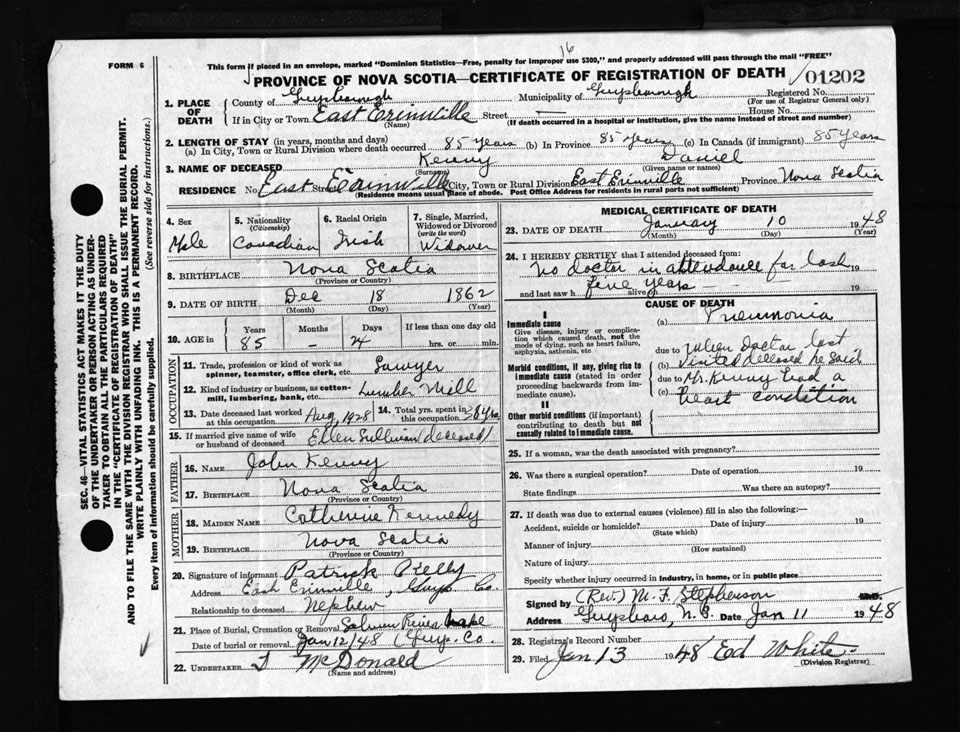 16
FORM 6
This form if placed in an envelope, marked "Dominion Statistics—Free, penalty for improper use $300," and properly addressed will pass through the mail "FREE"
PROVINCE OF NOVA SCOTIA—CERTIFICATE OF REGISTRATION OF DEATH
01202
1. PLACE OF DEATH
County of Guysborough Municipality of Guysborough Registered No.
(For use of Registrar General only)
If in City or Town East Erinville Street — House No.
(Name) (If death occurred in a hospital or institution, give the name instead of street and number)
2. LENGTH OF STAY (in years, months and days)
(a) In City, Town or Rural Division where death occurred 85 years (b) In Province 85 years (c) In Canada (if immigrant) 85 years
3. NAME OF DECEASED Kenny Daniel
(Surname) (Given name or names)
RESIDENCE No. East Street Erinville City, Town or Rural Division East Erinville Province Nova Scotia
(Residence means usual place of abode. Post Office Address for residents in rural parts not sufficient)
4. Sex
Male
5. Nationality
(Citizenship)
Canadian
6. Racial Origin
Irish
7. Single, Married, Widowed or Divorced
(write the word)
Widower
8. BIRTHPLACE Nova Scotia
(Province or Country)
9. DATE OF BIRTH Dec 18 1862
(Month) (Day) (Year)
10. AGE in
Years Months Days If less than one day old
85 – 24 hrs. or min.
OCCUPATION
11. Trade, profession or kind of work as spinner, teamster, office clerk, etc. Sawyer
12. Kind of industry or business, as cotton-mill, lumbering, bank, etc. Lumber Mill
13. Date deceased last worked at this occupation Aug 1928
14. Total yrs. spent in this occupation
15. If married give name of wife or husband of deceased Ellen Sullivan (deceased)
FATHER
16. NAME John Kenny
17. BIRTHPLACE Nova Scotia
(Province or Country)
MOTHER
18. MAIDEN NAME Catherine Kennedy
19. BIRTHPLACE Nova Scotia
(Province or Country)
20. Signature of informant Patrick
Address East Erinville, Guys Co.
Relationship to deceased Nephew
21. Place of Burial, Cremation or Removal Salmon River Lake
Date of burial or removal Jan 12/48 (Guy. Co.
22. UNDERTAKER J McDonald
(Name and address)
MEDICAL CERTIFICATE OF DEATH
23. DATE OF DEATH January 10 1948
(Month) (Day) (Year)
24. I HEREBY CERTIFY that I attended deceased from:
No doctor in attendance for last 19
five years —
and last saw h alive on 19
CAUSE OF DEATH
I
Immediate cause
Give disease, injury or complication which caused death, not the mode of dying, such as heart failure, asphyxia, asthenia, etc.
(a) Pneumonia
due to When Doctor last
Morbid conditions, if any, giving rise to immediate cause (stated in order proceeding backwards from immediate cause).
(b) visited deceased he said
due to Mr. Kenny had a
(c) heart condition
II
Other morbid conditions (if important) contributing to death but not causally related to immediate cause.
25. If a woman, was the death associated with pregnancy?
26. Was there a surgical operation? Date of operation 19
State findings Was there an autopsy?
27. If death was due to external causes (violence) fill in also the following:—
Accident, suicide or homicide? Date of injury 19
(State which)
Manner of injury
(How sustained)
Nature of injury
Specify whether injury occurred in industry, in home, or in public place
Signed by (Rev.) M. F. Stephenson M.D.
Address Guysboro, N.S. Date Jan 11 1948
28. Registrar's Record Number
29. Filed Jan 13 1948 Ed White
(Division Registrar)
SEC. 46—VITAL STATISTICS ACT MAKES IT THE DUTY
OF THE UNDERTAKER OR PERSON ACTING AS UNDER-
TAKER TO OBTAIN ALL THE PARTICULARS REQUIRED
IN THE "CERTIFICATE OF REGISTRATION OF DEATH"
AND TO FILE THE SAME WITH THE DIVISION REGISTRAR WHO SHALL ISSUE THE BURIAL PERMIT.
WRITE PLAINLY WITH UNFADING INK. THIS IS A PERMANENT RECORD.
Every item of information should be carefully supplied. (See reverse side for instructions.)